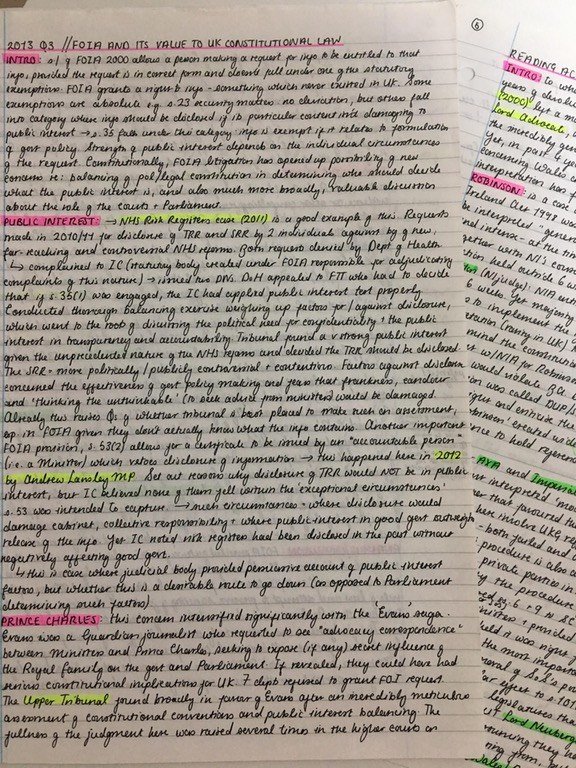 2013 Q3 // FOIA AND ITS VALUE TO UK CONSTITUTIONAL LAW
INTRO: s/1 of FOIA 2000 allows a person making a request for info to be entitled to that
info, provided the request is in correct form and doesn't fall under one of the statutory
exemptions. FOIA grants a right to info - something which never existed in UK. Some
exemptions are absolute e.g. s.23 security matters: no elevation, but others fall
into category where info should be disclosed if its particular content isn't damaging to
public interest → s.35 falls under this category: info is exempt if it relates to formulation
of govt policy. Strength of public interest depends on the individual circumstances
of the request. Constitutionally, FOIA litigation has opened up possibility of new
concerns re: balancing of pol/legal constitution in determining who should decide
what the public interest is, and also much more broadly, valuable discussion
about the role of the courts + Parliament.
PUBLIC INTEREST: → NHS Risk Registers case (2011) is a good example of this. Requests
made in 2010/11 for disclosure of TRR and SRR by 2 individuals against bg of new,
far-reaching and controversial NHS reforms. Both requests denied by Dept of Health
↳ complained to IC (statutory body created under FOIA responsible for adjudicating
complaints of this nature) → issued two DNs. DoH appealed to FTT who had to decide
that if s.35(1) was engaged, the IC had applied public interest test properly.
Conducted thorough balancing exercise weighing up factors for/against disclosure,
which went to the root of discerning the political need for confidentiality + the public
interest in transparency and accountability. Tribunal found a v strong public interest
given the unprecedented nature of the NHS reforms and decided the TRR should be disclosed.
The SRR = more politically/publicly controversial + contentious. Factors against disclosure
concerned the effectiveness of govt policy making and fears that frankness, candour
and 'thinking the unthinkable' (to seek advice from ministers) would be damaged.
Already this raises Qs of whether tribunal is best placed to make such an assessment,
esp in FOIA given they don't actually know what the info contains. Another important
FOIA provision, s.53(2) allows for a certificate to be issued by an "accountable person"
(i.e. a Minister) which vetoes disclosure of information → this happened here in 2012
by Andrew Lansley MP. Set out reasons why disclosure of TRR would NOT be in public
interest, but IC believed none of them fell within the 'exceptional circumstances'
s.53 was intended to capture. → such circumstances = where disclosure would
damage cabinet, collective responsibility + where public interest in good govt outweighs
release of the info. Yet IC noted risk registers had been disclosed in the past without
negatively affecting good govt.
↳ this is case where judicial body provided persuasive account of public interest
factors, but whether this is a desirable route to go down (as opposed to Parliament
determining such factors)
PRINCE CHARLES: This concern intensified significantly with the 'Evans' saga.
Evans was a Guardian journalist who requested to see "advocacy correspondence"
between Ministers and Prince Charles, seeking to expose (if any) secret influence of
the Royal Family on the govt and Parliament. If revealed, they could have had
serious constitutional implications for UK. 7 depts refused to grant FOI request.
The Upper Tribunal found broadly in favour of Evans after an incredibly meticulous
assessment of constitutional conventions and public interest balancing. The
fullness of the judgment here was raised several times in the higher courts on
6
READING AC
INTRO: to wh
years of devol
(2000)
Lord Advocate
the incredibly gener
Yet, in part, 4 y
concerning Wales a
interpretation has f
ROBINSON: is a case
Ireland Act 1998 wou
be interpreted "gener
held outside 6 w
(NI judge): NIA
6 weeks. Yet majority
to implement the
mind the constitution
w/ NIA for Robinson
would violate
was called DUP/S
and criticise the
Robinson' created
to hold refere
AXA and Imperial
interpreted 'mo
that favoured th
here involve UKG, re
- both failed and
procedure is also a
private parties in
the procedure
s.6 + 9 is SC
ministers + provided
held it was right
the most importa
legislatures that
Lord Neuberg